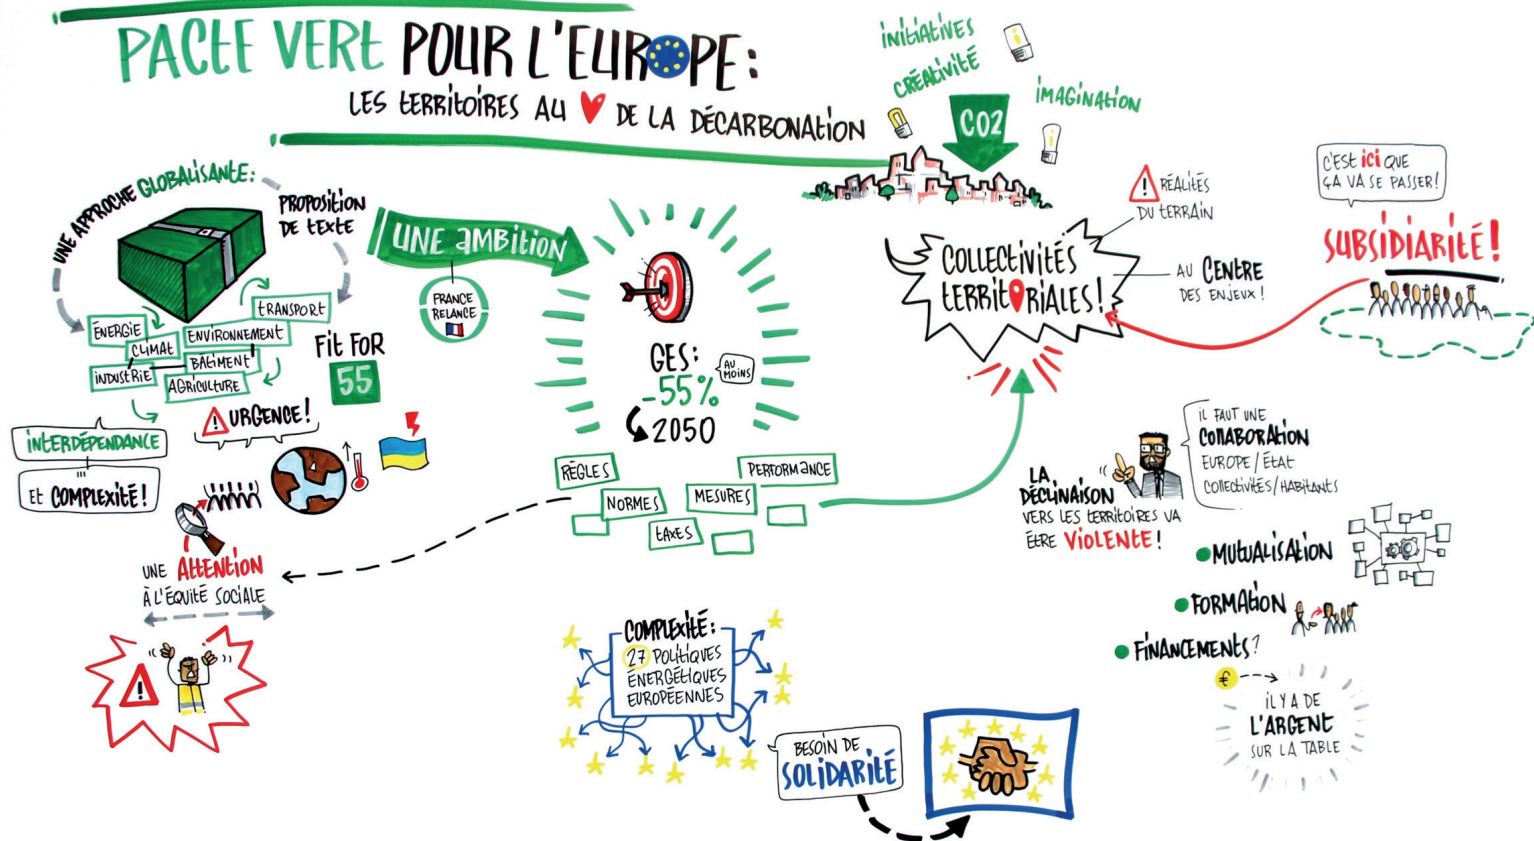 PACTE VERT POUR L'EUROPE:
LES TERRITOIRES AU DE LA DÉCARBONATION
INITIATIVES
CRÉATIVITÉ
IMAGINATION
CO2
UNE APPROCHE GLOBALISANTE:
PROPOSITION
DE TEXTE
ÉNERGIE
CLIMAT
ENVIRONNEMENT
TRANSPORT
INDUSTRIE
BÂTIMENT
AGRICULTURE
FIT FOR
55
INTERDÉPENDANCE
ET COMPLEXITÉ!
URGENCE!
UNE ATTENTION
À L'ÉQUITÉ SOCIALE
UNE AMBITION
FRANCE
RELANCE
GES:
-55%
AU
MOINS
2050
RÈGLES
NORMES
TAXES
MESURES
PERFORMANCE
COMPLEXITÉ:
27 POLITIQUES
ÉNERGÉTIQUES
EUROPÉENNES
BESOIN DE
SOLIDARITÉ
COLLECTIVITÉS
TERRITORIALES!
RÉALITÉS
DU TERRAIN
AU CENTRE
DES ENJEUX!
C'EST ICI QUE
ÇA VA SE PASSER!
SUBSIDIARITÉ!
LA
DÉCLINAISON
VERS LES TERRITOIRES VA
ÊTRE VIOLENTE!
IL FAUT UNE
COLLABORATION
EUROPE/ÉTAT
COLLECTIVITÉS/HABITANTS
MUTUALISATION
FORMATION
FINANCEMENTS?
€
IL Y A DE
L'ARGENT
SUR LA TABLE